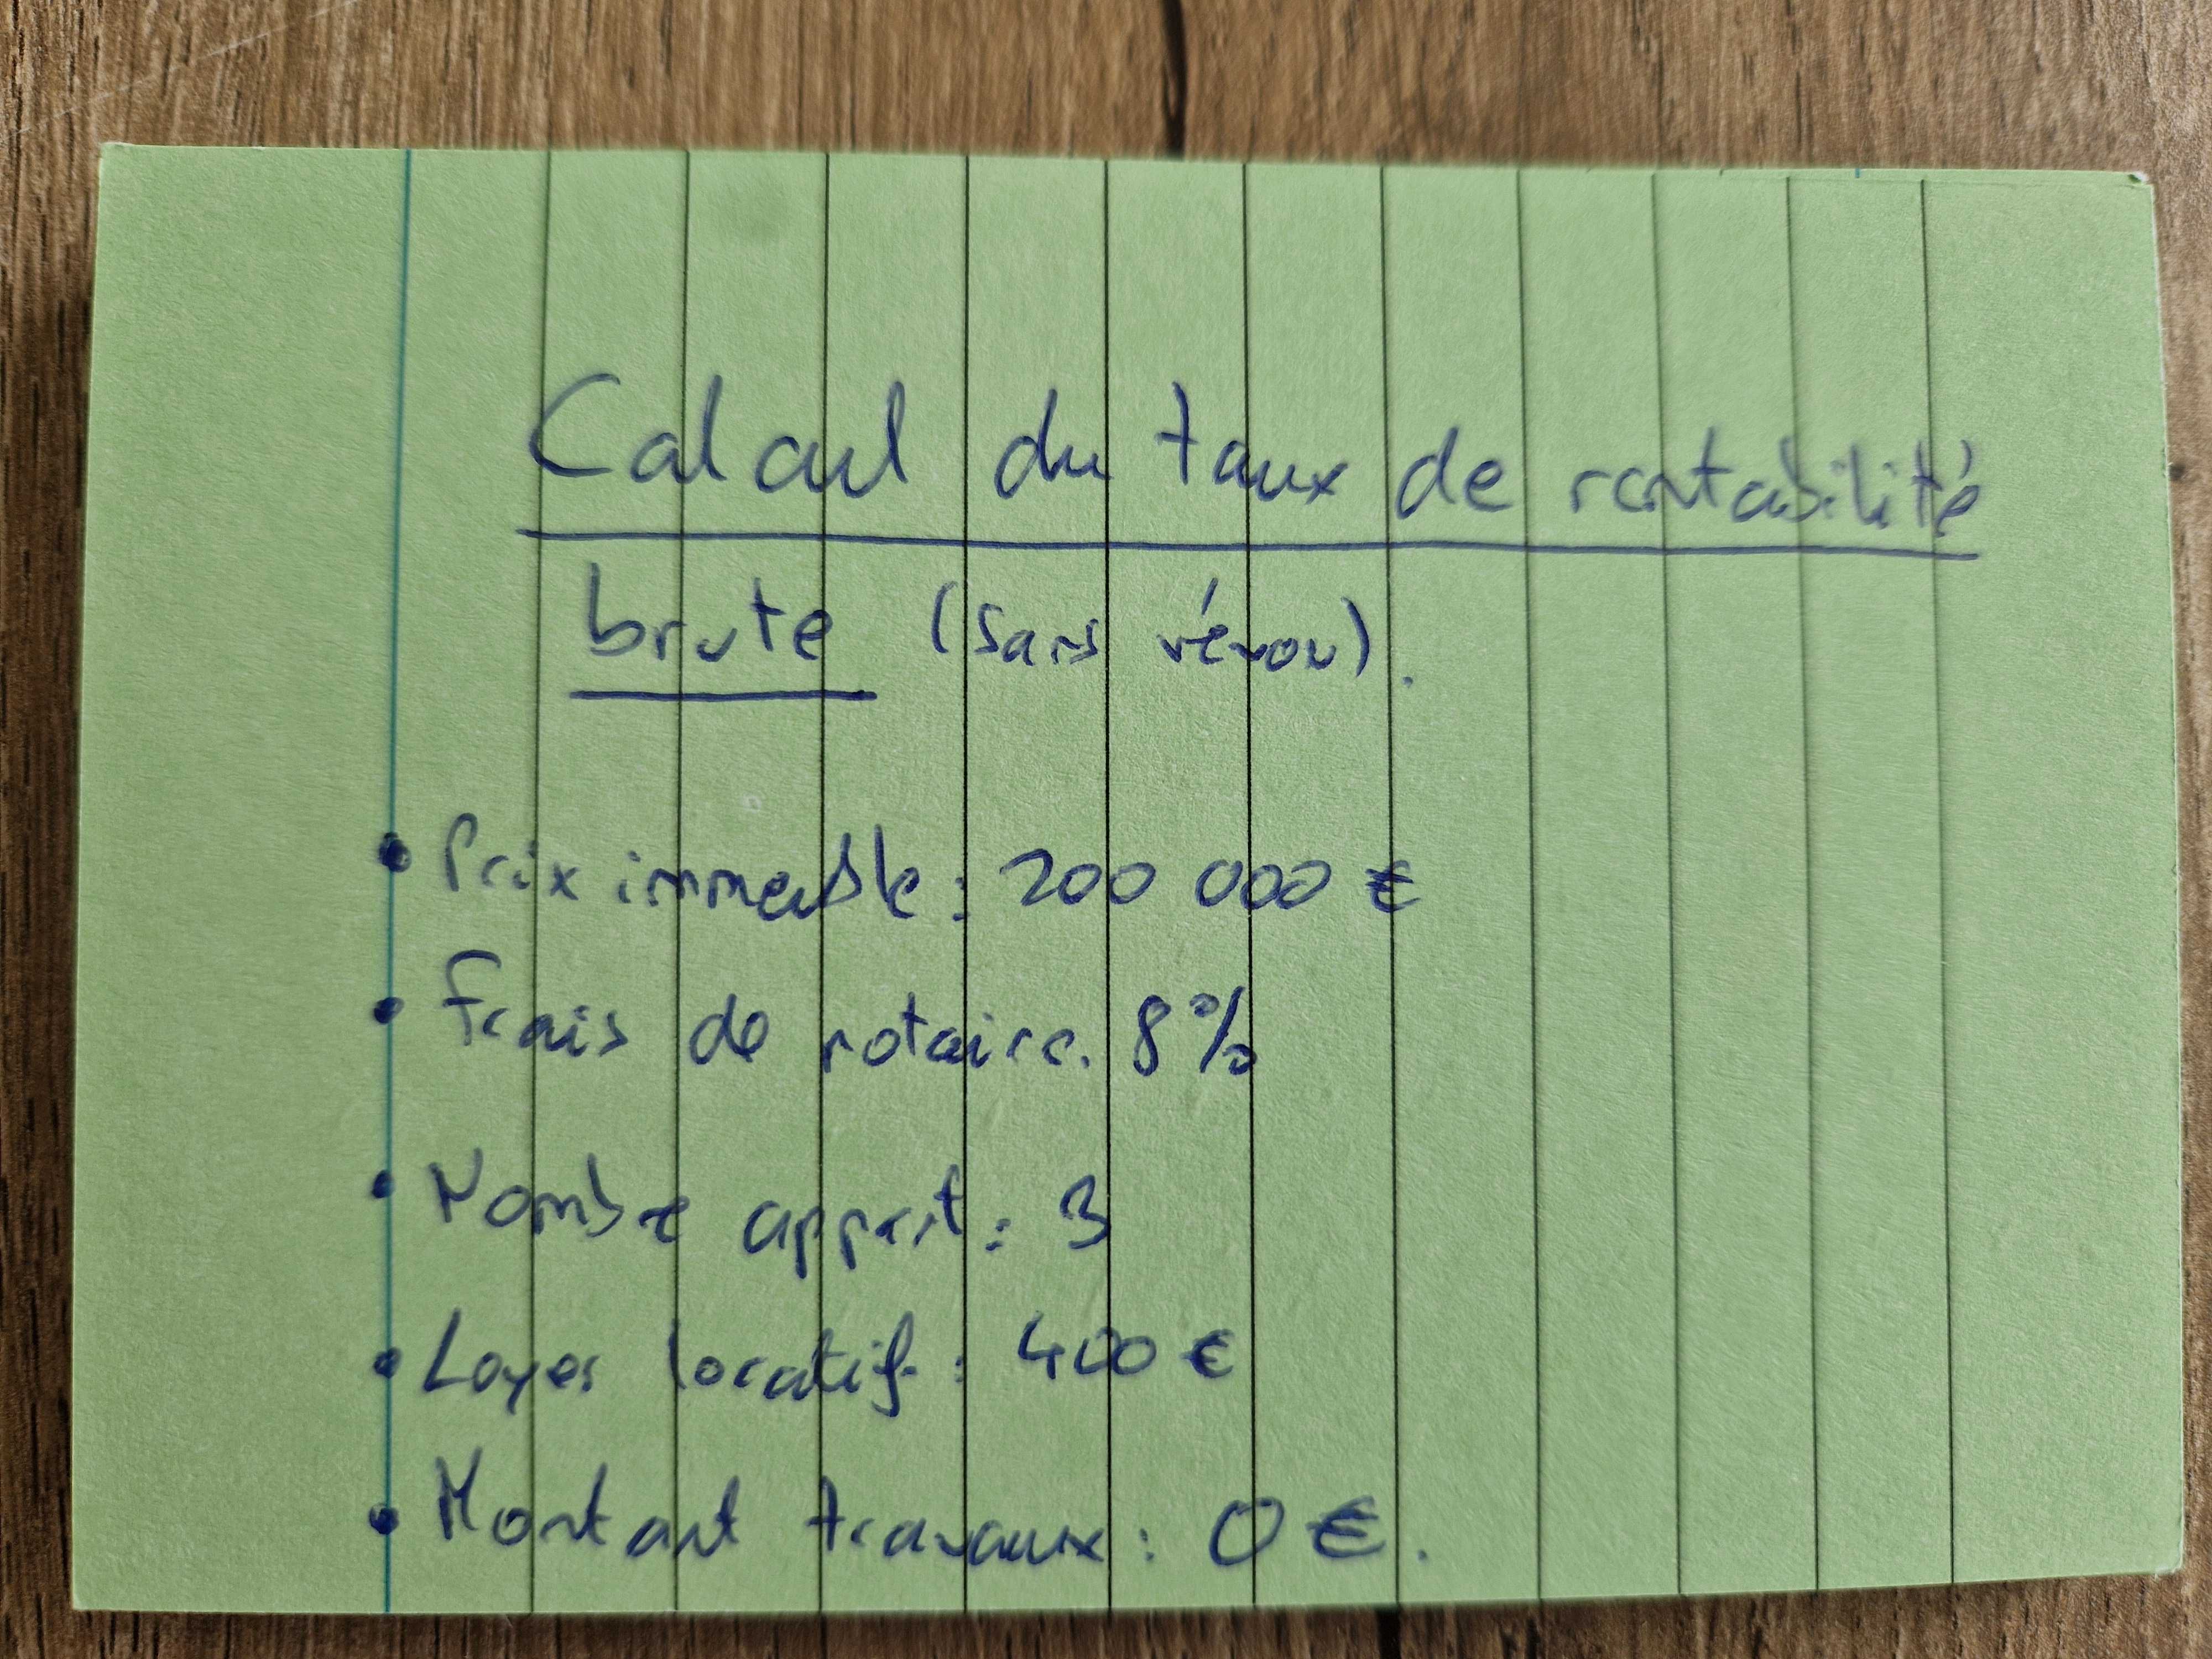 Calcul du taux de rentabilité
brute (sans rénov).
• Prix immeuble : 200 000 €
• Frais de notaire. 8%
• Nombre appart : 3
• Loyer locatif : 400 €
• Montant travaux : 0 €.